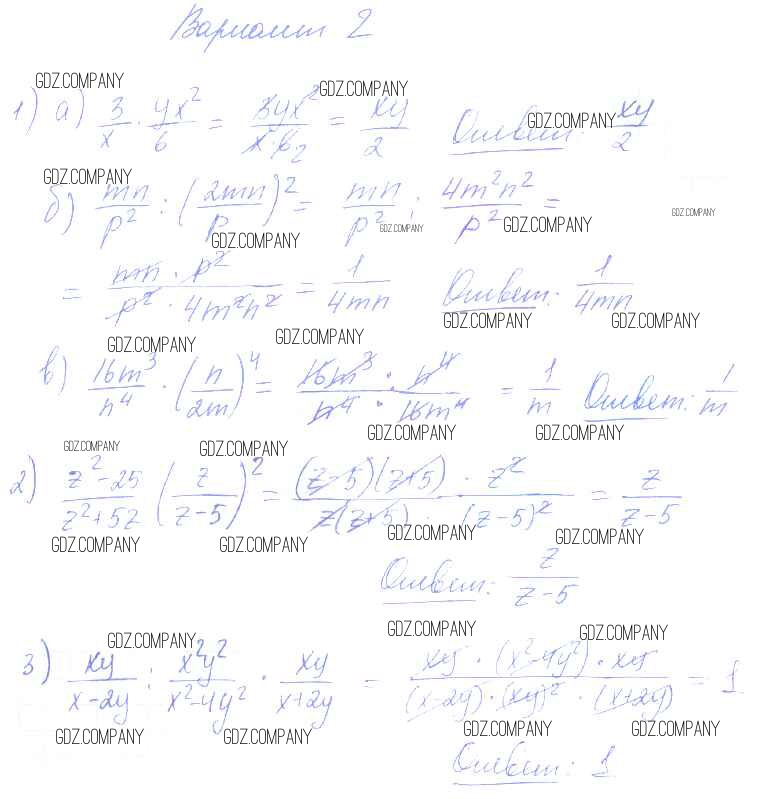 Вариант 2
GDZ.COMPANY GDZ.COMPANY
1) а) 3/x · yx²/6 = 3yx²/x·6₂ = xy/2 Ответ: xy/2
GDZ.COMPANY
GDZ.COMPANY
б) mn/p² : (2mn/p)² = mn/p² : 4m²n²/p² =
GDZ.COMPANY GDZ.COMPANY GDZ.COMPANY GDZ.COMPANY
= mn · p²/p² · 4m²n² = 1/4mn Ответ: 1/4mn
GDZ.COMPANY GDZ.COMPANY GDZ.COMPANY GDZ.COMPANY
в) 16m³/n⁴ · (n/2m)⁴ = 16m³ · n⁴/n⁴ · 16m⁴ = 1/m Ответ: 1/m
GDZ.COMPANY GDZ.COMPANY GDZ.COMPANY GDZ.COMPANY
2) z²-25/z²+5z (z/z-5)² = (z-5)(z+5) · z²/z(z+5) · (z-5)² = z/z-5
GDZ.COMPANY GDZ.COMPANY GDZ.COMPANY GDZ.COMPANY
Ответ: z/z-5
GDZ.COMPANY GDZ.COMPANY GDZ.COMPANY
3) xy/x-2y : x²y²/x²-4y² · xy/x+2y = xy · (x²-4y²) · xy/(x-2y) · (xy)² · (x+2y) = 1
GDZ.COMPANY GDZ.COMPANY GDZ.COMPANY GDZ.COMPANY
Ответ: 1